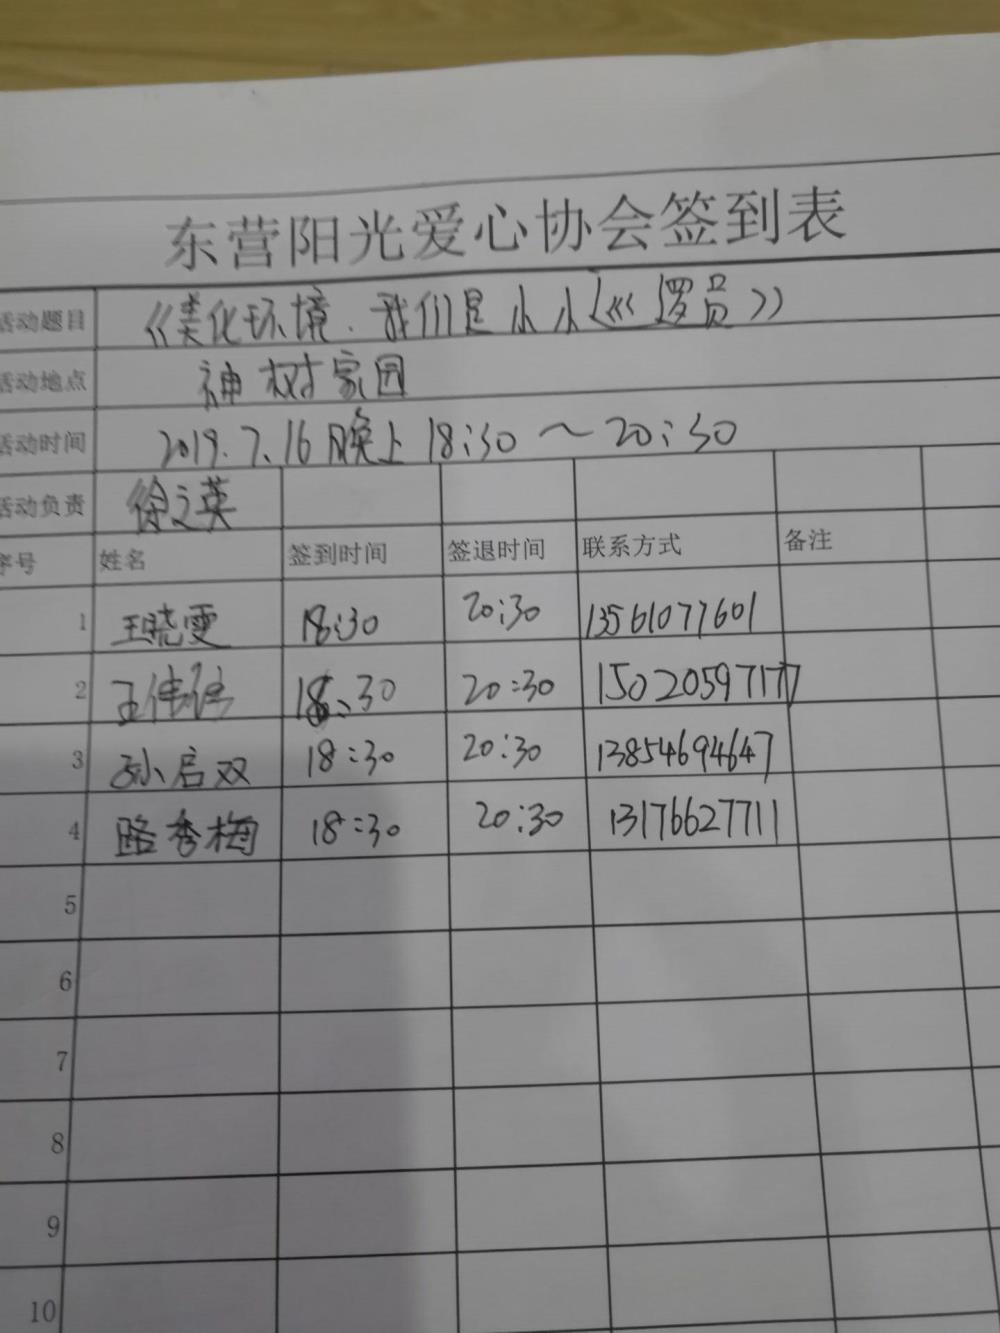 东营阳光爱心协会签到表
活动题目 《美化环境、我们是小小巡逻员》
活动地点 神树家园
活动时间 2019.7.16晚上18:30～20:30
活动负责 徐之英
序号 姓名 签到时间 签退时间 联系方式 备注
1 王晓雯 18:30 20:30 13561077601
2 王伟伟 18:30 20:30 15020597177
3 孙启双 18:30 20:30 13854694647
4 路秀梅 18:30 20:30 13176627711
5
6
7
8
9
10